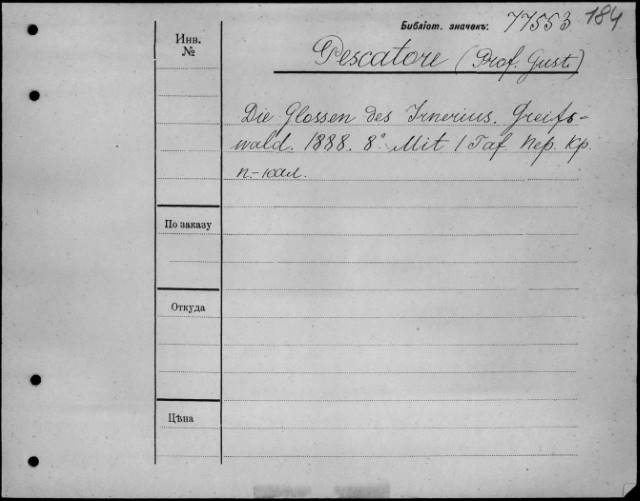 Библіот. значекъ: 77553 184
Инв.
№
Pescatore (Prof. Gust.)
Die Glossen des Irnerius. Greifs-
wald. 1888. 8° Mit 1 Taf. Пер. Кр.
п-кал.
По заказу
Откуда
Цѣна